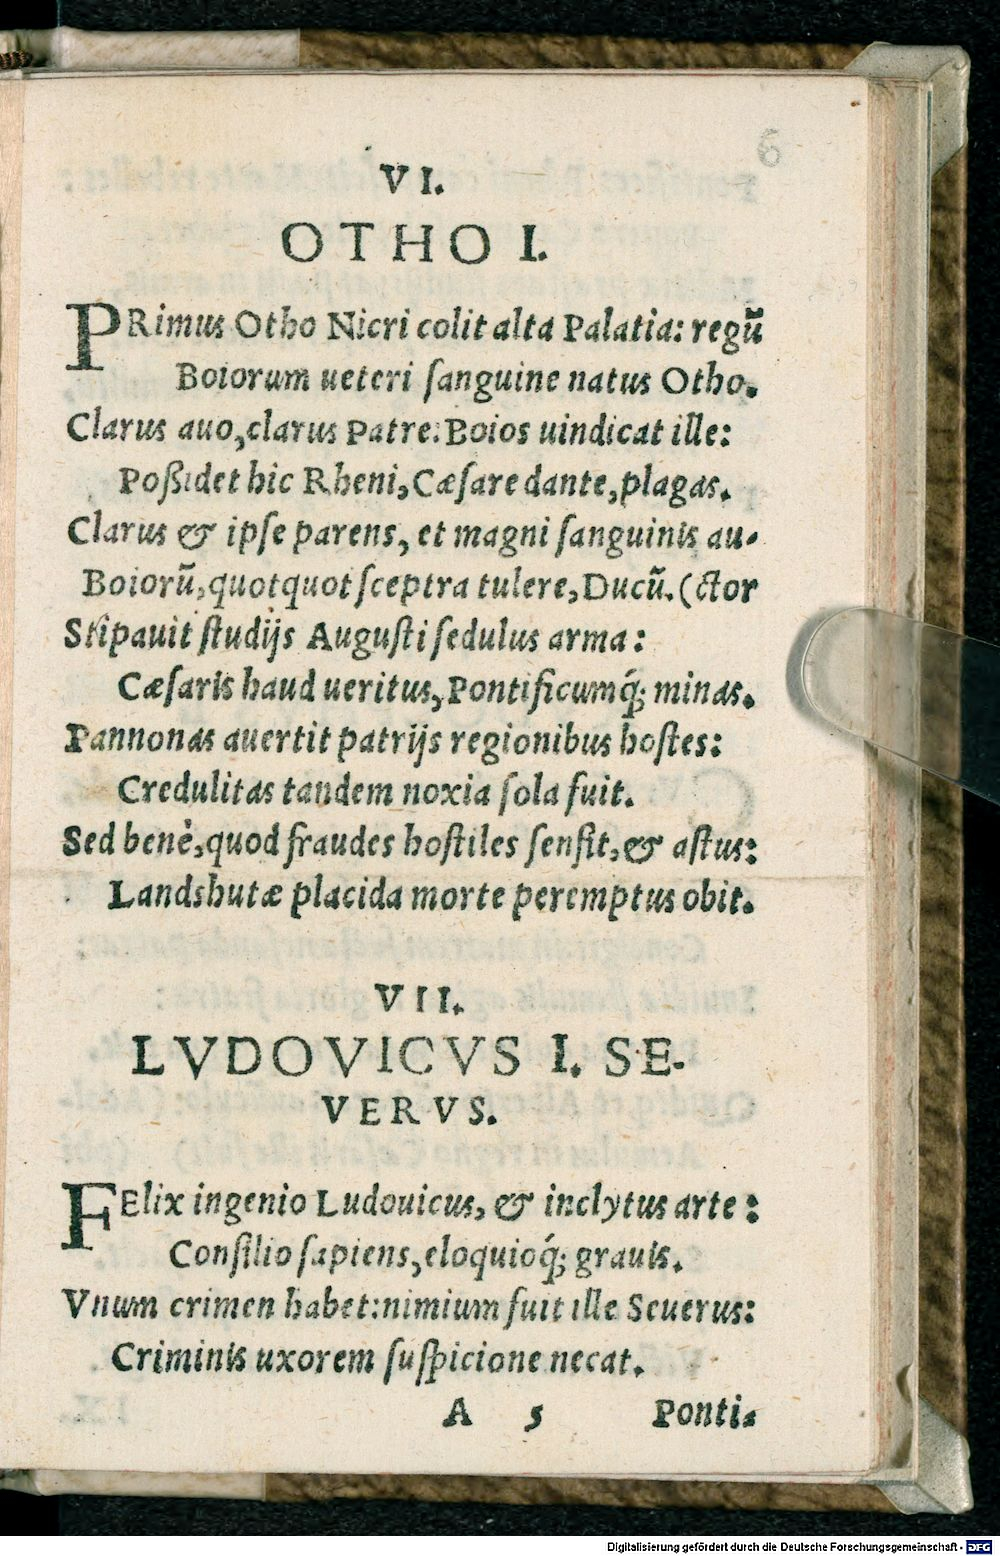 6
VI.
OTHO I.
PRimus Otho Nicri colit alta Palatia: regũ
Boiorum ueteri ſanguine natus Otho.
Clarus auo, clarus Patre: Boios uindicat ille:
Poßidet hic Rheni, Cæſare dante, plagas.
Clarus & ipſe parens, et magni ſanguinis au-
Boiorũ, quotquot ſceptra tulere, Ducũ. (ctor
Stipauit ſtudijs Auguſti ſedulus arma:
Cæſaris haud ueritus, Pontificumq́; minas.
Pannonas auertit patrijs regionibus hoſtes:
Credulitas tandem noxia ſola fuit.
Sed benè, quod fraudes hoſtiles ſenſit, & aſtus:
Landshutæ placida morte peremptus obit.
VII.
LVDOVICVS I. SE-
VERVS.
FElix ingenio Ludouicus, & inclytus arte:
Conſilio ſapiens, eloquioq́; grauis.
Vnum crimen habet: nimium fuit ille Seuerus:
Criminis uxorem ſuſpicione necat.
A 5 Ponti-
Digitalisierung gefördert durch die Deutsche Forschungsgemeinschaft - DFG